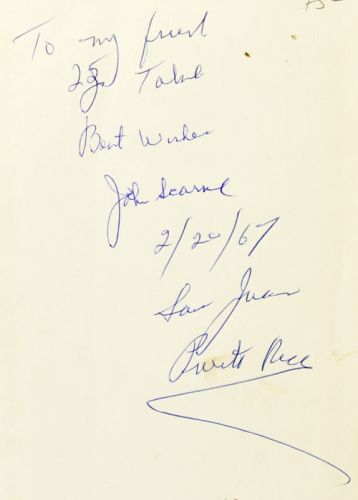 To my friend
Best Wishes
John Scarne
2/20/67
San Juan
Puerto Rico